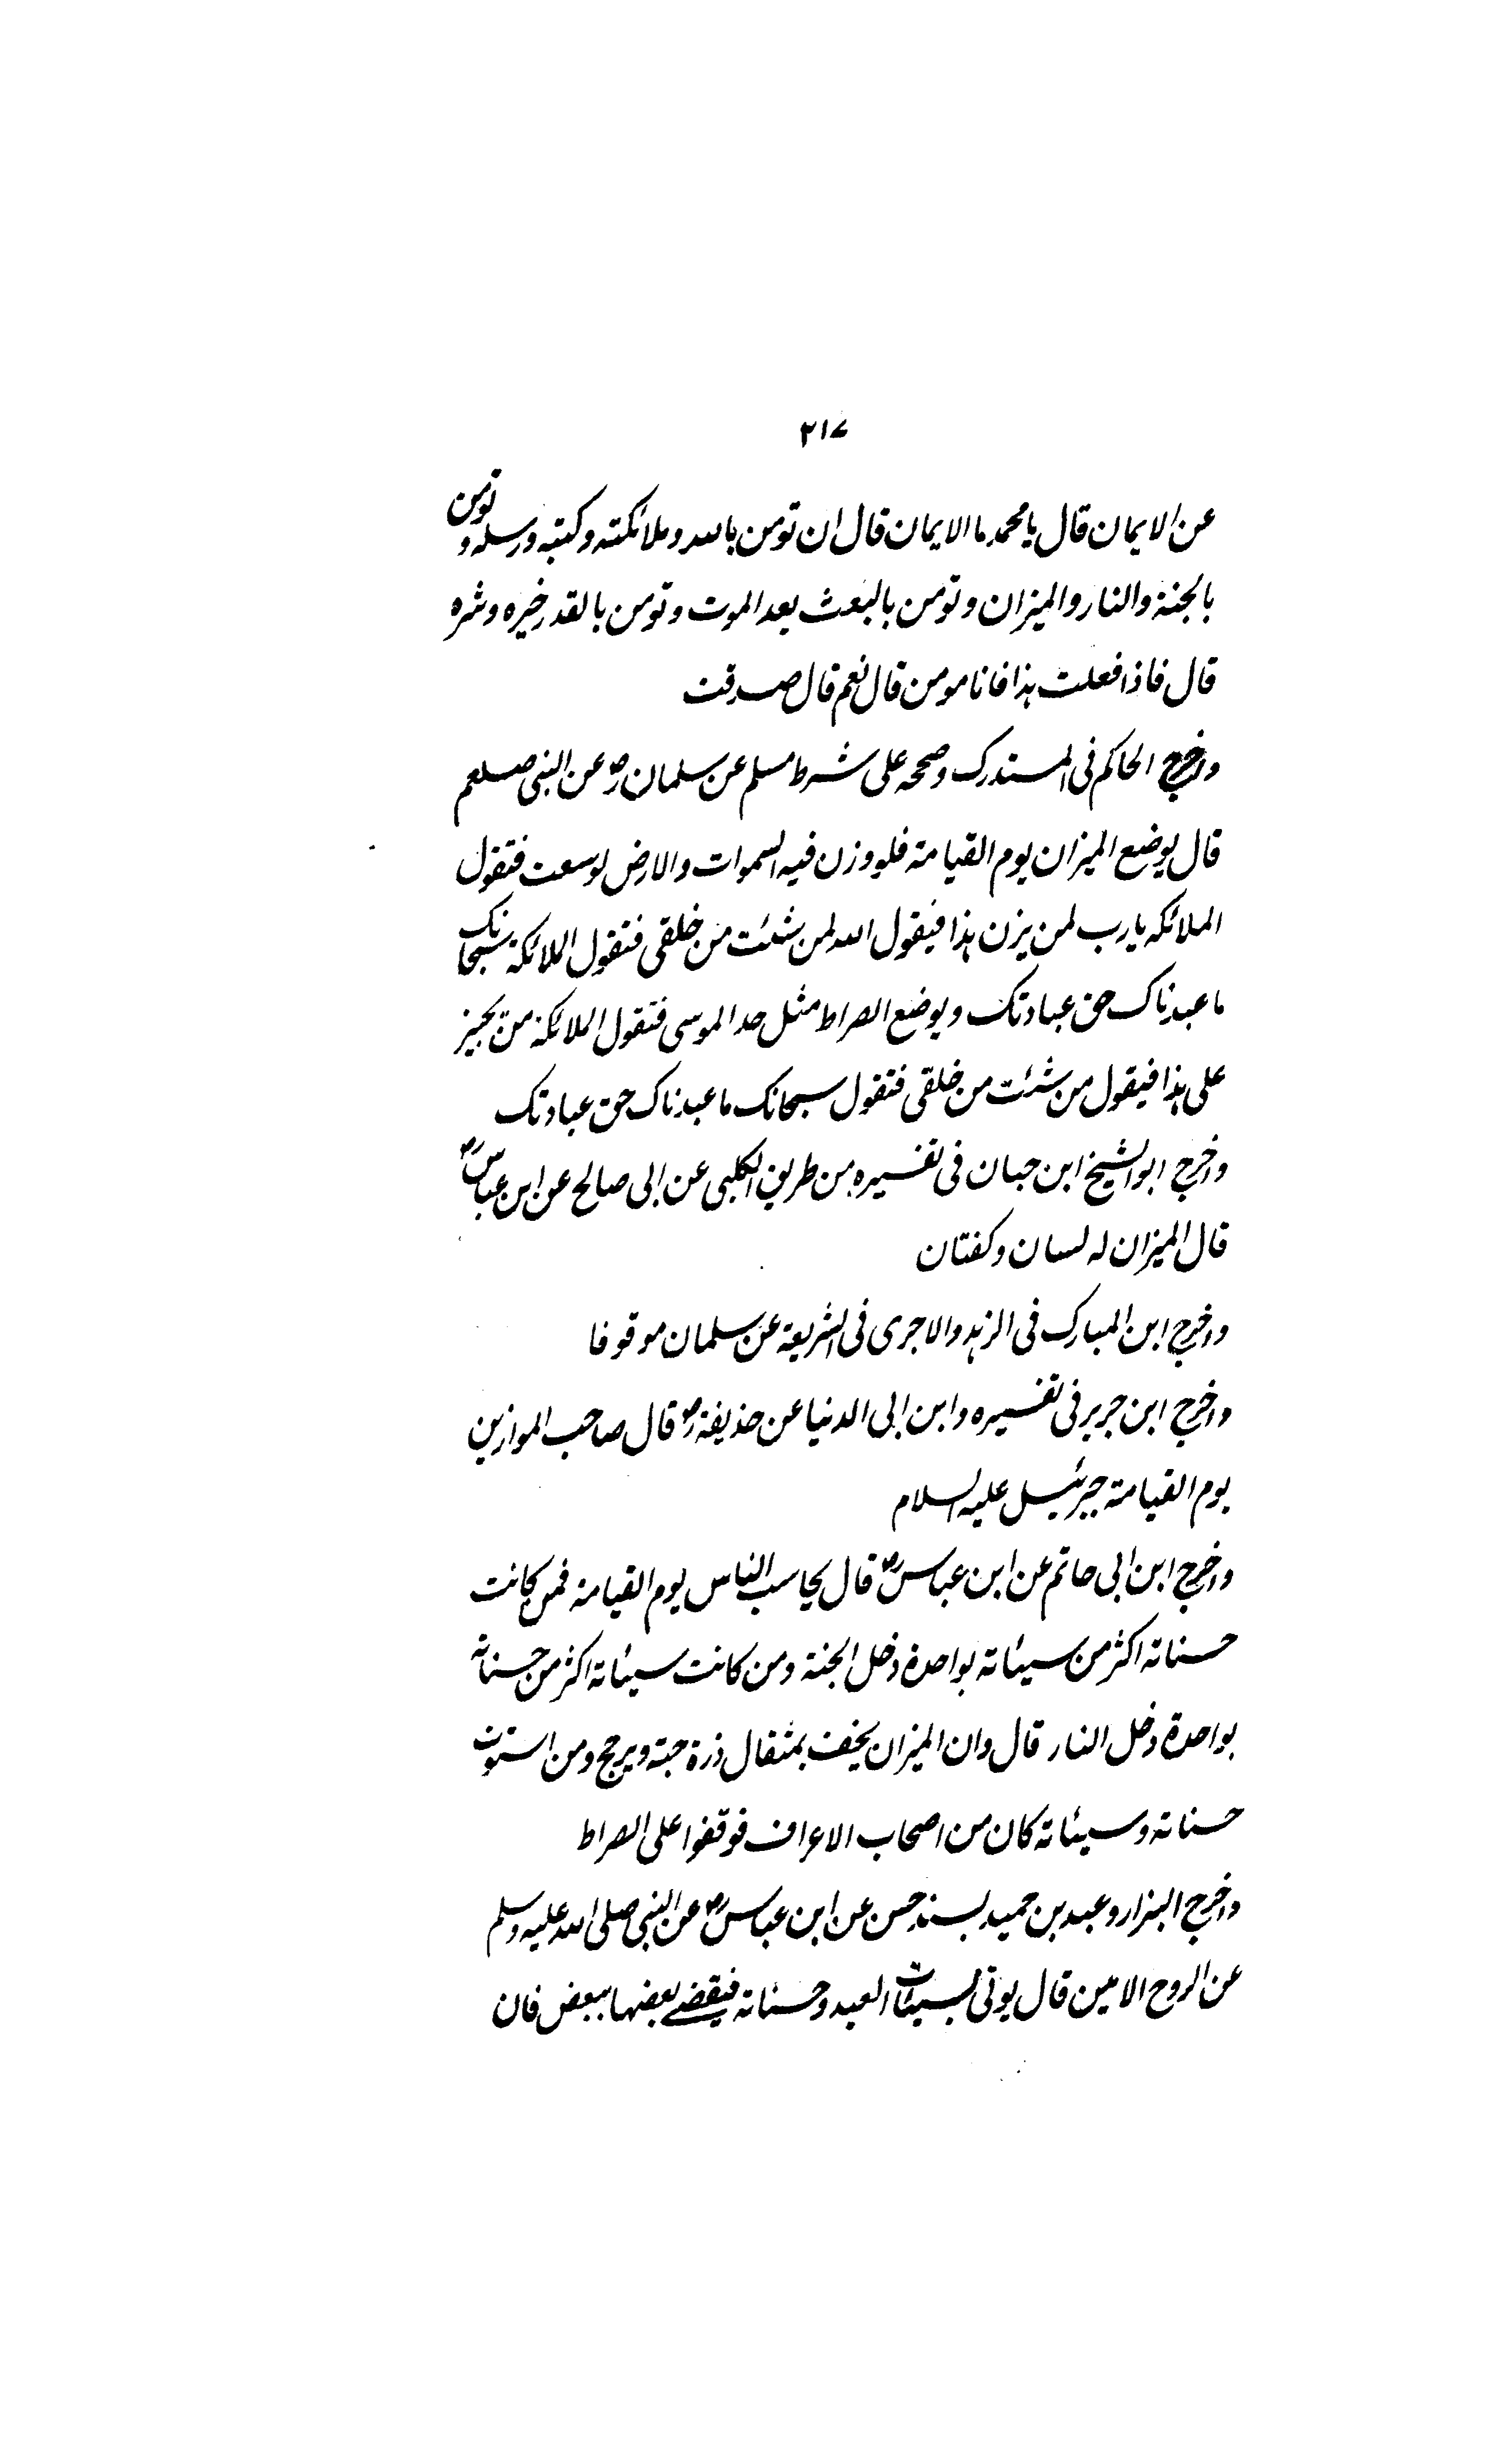 ۲۱۷
عن الایمان قال یا محمد ما الایمان قال ان تومن باللہ وملائکتہ وکتبہ ورسلہ و تومن
بالجنۃ والنار والمیزان وتومن بالبعث بعد الموت وتومن بالقدر خیرہ وشرہ
قال فاذا فعلت ہذا فانا مومن قال نعم قال صدقت
واخرج الحاکم فی المستدرک وصححہ علی شرط مسلم عن سلمان رض عن النبی صلعم
قال یوضع المیزان یوم القیامۃ فلو وزن فیہ السموات والارض لوسعت فتقول
الملائکہ یارب لمن یزن ہذا فیقول اللہ لمن شئت من خلقی فتقول الملائکۃ سبحانک
ما عبدناک حق عبادتک ویوضع الصراط مثل حد الموسی فتقول الملائکۃ من یجیز
علی ہذا فیقول من شئت من خلقی فتقول سبحانک ما عبدناک حق عبادتک
واخرج ابو الشیخ ابن حبان فی تفسیرہ من طریق الکلبی عن ابی صالح عن ابن عباس رض
قال المیزان لہ لسان وکفتان
واخرج ابن المبارک فی الزہد والاجری فی الشریعۃ عن سلمان موقوفا
واخرج ابن جریر فی تفسیرہ وابن ابی الدنیا عن حذیفۃ رض قال صاحب الموازین
یوم القیامۃ جبرئیل علیہ السلام
واخرج ابن ابی حاتم عن ابن عباس رض قال یحاسب الناس یوم القیامۃ فمن کانت
حسناتہ اکثر من سیئاتہ بواحدۃ دخل الجنۃ ومن کانت سیئاتہ اکثر من حسناتہ
بواحدۃ دخل النار قال وان المیزان یخف بمثقال ذرۃ حبتہ ویرجح ومن استوت
حسناتہ وسیئاتہ کان من اصحاب الاعراف فوقفوا علی الصراط
واخرج البزار وعبد بن حمید بسند حسن عن ابن عباس رض عن النبی صلی اللہ علیہ وسلم
عن الروح الامین قال یوتی بسیئات العبد وحسناتہ فیقضے بعضہا ببعض فان